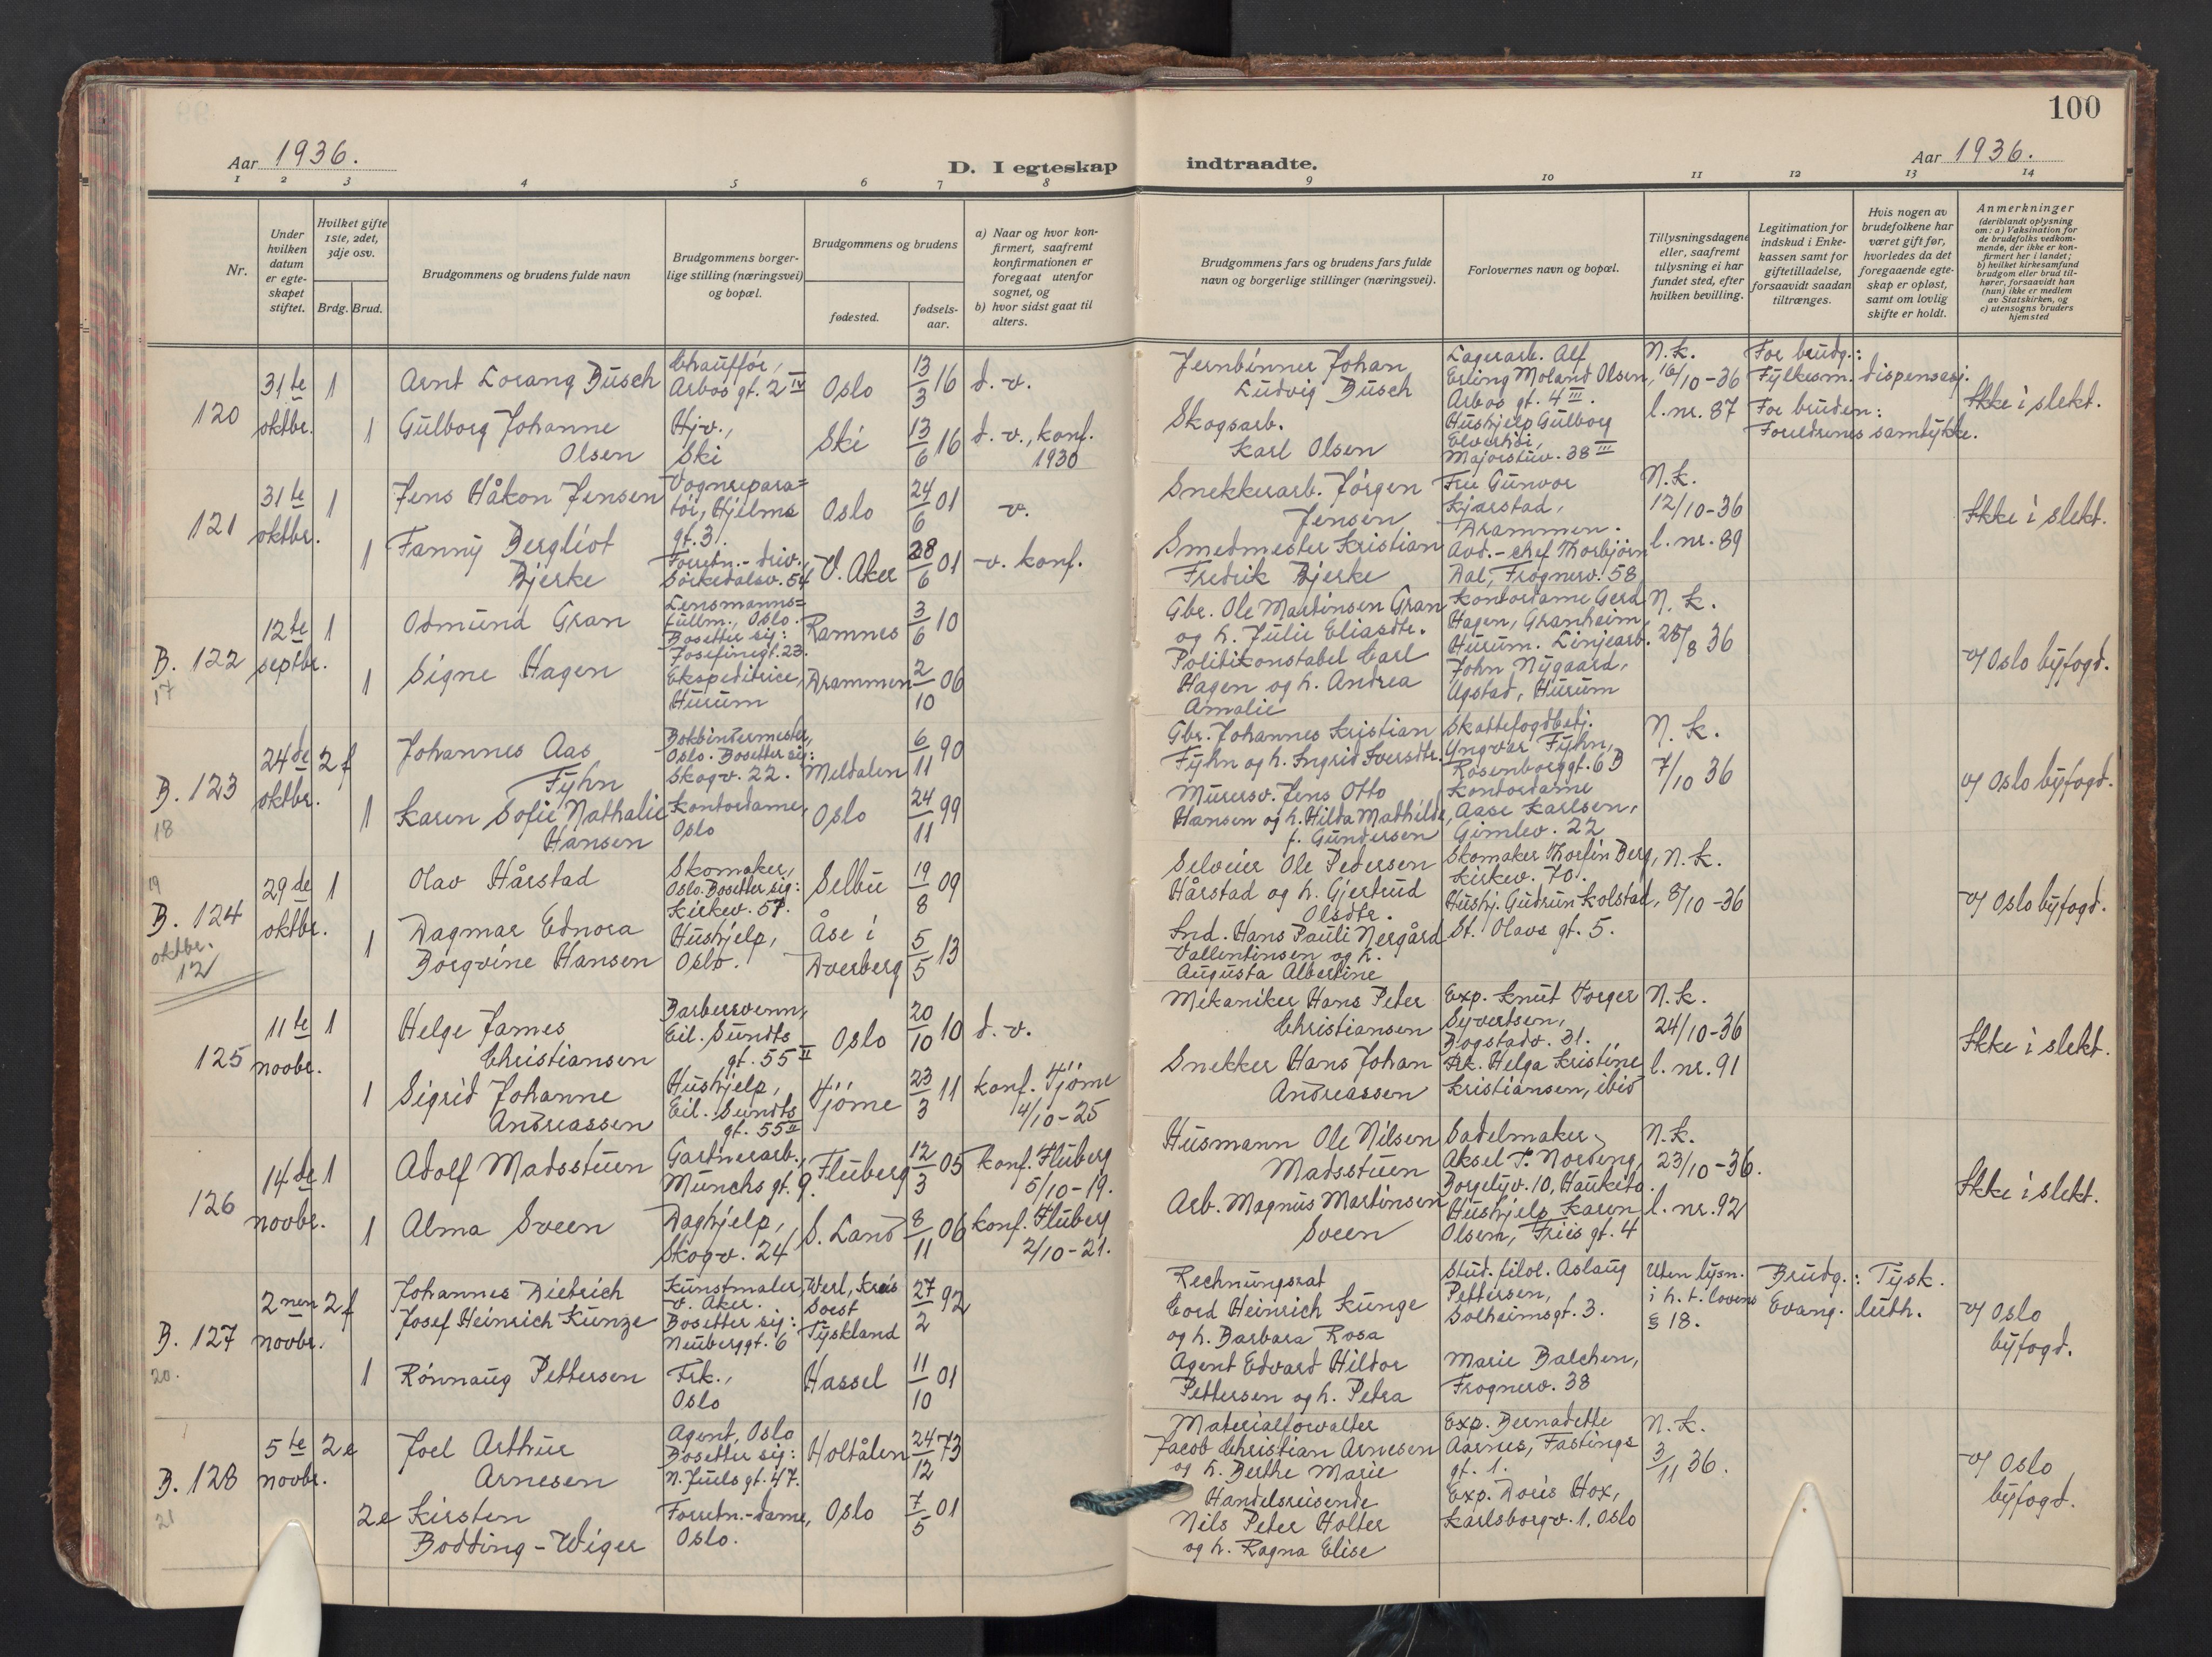 100
Aar 1936.
D. I egteskap indtraadte.
Aar 1936.
1 2 3 4 5 6 7 8 9 10 11 12 13 14
Nr.
Under hvilken datum er egte-skapet stiftet.
Hvilket gifte 1ste, 2det, 3dje osv.
Brdg. Brud.
Brudgommens og brudens fulde navn
Brudgommens borger-lige stilling (næringsvei) og bopæl.
Brudgommens og brudens
fødested.
fødsels-aar.
a) Naar og hvor kon-firmert, saafremt konfirmationen er foregaat utenfor sognet, og
b) hvor sidst gaat til alters.
Brudgommens fars og brudens fars fulde navn og borgerlige stillinger (næringsvei).
Forlovernes navn og bopæl.
Tillysningsdagene eller, saafremt tillysning ei har fundet sted, efter hvilken bevilling.
Legitimation for indskud i Enke-kassen samt for giftetilladelse, forsaavidt saadan tiltrænges.
Hvis nogen av brudefolkene har været gift før, hvorledes da det foregaaende egte-skap er opløst, samt om lovlig skifte er holdt.
Anmerkninger
(deriblandt oplysning om: a) Vaksination for de brudefolks vedkom-mende, der ikke er kon-firmert her i landet;
b) hvilket kirkesamfund brudgom eller brud til-hører, forsaavidt han (hun) ikke er medlem av Statskirken, og
c) utensogns bruders hjemsted
120
31te oktbr.
1
Arnt Lorang Busch
Chauffør, Arbos gt. 2 IV
Oslo
13/3 16
d. v.
Jernbinner Johan Ludvig Busch
Lagerarb. Alf Erling Moland Olsen, Arbos gt. 4 III.
N.k. 16/10-36
l. nr. 87
For brudg.: Fylkesm. dispensasj.
For bruden: Foreldrenes samtykke.
Ikke i slekt.
1
Gulborg Johanne Olsen
Hjv., Ski
Ski
13/6 16
d. v., konf. 1930
Skogsarb. Karl Olsen
Hushjelp Gulborg Elverhøi, Majorstuv. 38 III
121
31te oktbr.
1
Jens Håkon Jensen
Vognrepara= tør, Hjelms gt. 3.
Oslo
24/6 01
v.
Snekkerarb. Jørgen Jensen
Fru Gunvor Kjærstad, Drammen.
N.k. 12/10-36
l. nr. 89
Ikke i slekt.
1
Fanny Bergliot Bjerke
Forretn.-driv., Sørkedalsv. 54
V. Aker
28/6 01
v. konf.
Smedmester Kristian Fredrik Bjerke
Avd.-chef Thorbjørn Dal, Frognerv. 58
B. 122
17
12te septbr.
1
Odmund Gran
Lensmanns= fullm., Oslo. Bosetter sig: Josefinegt. 23.
Ramnes
3/6 10
Gbr. Ole Martinsen Gran og h. Julie Eliasdtr.
Kontordame Gerd Hagen, Granheim, Hurum.
N. k. 28/8 36
v/ Oslo byfogd.
1
Signe Hagen
Ekspeditrice, Hurum
Drammen
2/10 06
Politikonstabel Carl Hagen og h. Andrea Amalie
Linjearb. John Nygaard, Ugstad, Hurum
B. 123
18
24de oktbr.
2 f
Johannes Aas Fyhn
Bokbindermester, Oslo. Bosetter sig: Skogv. 22.
Meldalen
6/11 90
Gbr. Johannes Kristian Fyhn og h. Ingrid Iversdtr.
Skattefogdbetj. Yngvar Fyhn, Rosenborggt. 6 B
N. k. 7/10 36
v/ Oslo byfogd.
1
Karen Sofie Nathalie Hansen
Kontordame, Oslo
Oslo
24/11 99
Murersv. Jens Otto Hansen og h. Hilda Mathilde, f. Gundersen
Kontordame Aase Karlsen, Gimlev. 22
19
B. 124
oktbr. 12
29de oktbr.
1
Olav Hårstad
Skomaker, Oslo. Bosetter sig: Kirkev. 57.
Selbu
19/8 09
Selveier Ole Pedersen Hårstad og h. Gjertrud Olsdtr.
Skomaker Thorfin Berg, Kirkev. 70.
N. k. 8/10-36
v/ Oslo byfogd.
1
Dagmar Ednora Borgvine Hansen
Hushjelp, Oslo.
Åse i Dverberg
5/5 13
Ind. Hans Pauli Nergård Vallentinsen og h. Augusta Albertine
Hushj. Gudrun Kolstad, St. Olavs gt. 5.
125
11te novbr.
1
Helge James Christiansen
Barbersvenn, Eil. Sundts gt. 55 II
Oslo
20/10 10
d. v.
Mekaniker Hans Peter Christiansen
Exp. Knut Torger Syvertsen, Bogstadv. 31.
N. k. 24/10-36
l. nr. 91
Ikke i slekt.
1
Sigrid Johanne Andreassen
Hushjelp, Eil. Sundts gt. 55 II
Tjöme
23/3 11
konf. Tjöme 4/10-25
Snekker Hans Johan Andreassen
Frk. Helga Kristine Kristiansen, ibid
126
14de novbr.
1
Adolf Madsstuen
Gartnerarb., Munchs gt. 9.
Fluberg
12/3 05
konf. Fluberg 5/10-19.
Husmann Ole Nilsen Madsstuen
Sadelmaker Aksel T. Nordeng, Borgelyv. 10, Hauketo.
N.k. 23/10-36.
l. nr. 92
Ikke i slekt.
1
Alma Sveen
Daghjelp, Skogv. 24
S. Land
8/11 06
konf. Fluberg 2/10-21.
Arb. Magnus Martinsen Sveen
Hushjelp Karen Olsen, Friis gt. 4
B. 127
20.
2nen novbr.
2 f
Johannes Dietrich Josef Heinrich Kunze
Kunstmaler, V. Aker. Bosetter sig: Neuberggt. 6
Werl, Kreis Soest Tyskland
27/2 92
Rechnungsrat Cord Heinrich Kunze og h. Barbara Rosa
Stud. filol. Aslaug Pettersen, Solheimsgt. 3.
Uten lysn. i h. t. lovens § 18.
Brudg.: Tysk. Evang. luth.
v/ Oslo byfogd.
1
Rønnaug Pettersen
Frk., Oslo
Hassel
11/10 01
Agent Edvard Hildor Pettersen og h. Petra
Marie Balchen, Frognerv. 38
B. 128
21
5te novbr.
2 e
Joel Arthur Arnesen
Agent, Oslo Bosetter sig: N. Juels gt. 47.
Holtålen
24/12 73
Materialforvalter Jacob Christian Arnesen og h. Berthe Marie
Exp. Bernadette Aarnes, Fastings gt. 1.
N. k. 3/11 36.
v/ Oslo byfogd.
2 e
Kirsten Bodding-Wiger
Forretn.-dame, Oslo.
Oslo
7/5 01
Handelsreisende Nils Peter Holter og h. Ragna Elise
Exp. Doris Hox, Karlsborgv. 1, Oslo